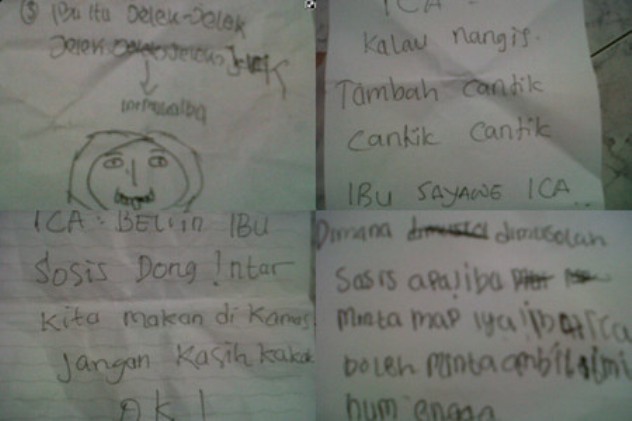 ③ IBu itu Delek-Delek
Jelek
ICA -
Kalau nangis.
Tambah cantik
Cantik Cantik
IBU SAYANG ICA
ICA : BELiin IBU
Sosis Dong !ntar
Kita makan di Kamar
Jangan Kasih kakak
OK !
Dimana dimusolah
Sosis apa
Minta map iya
boleh minta ambil
num engga